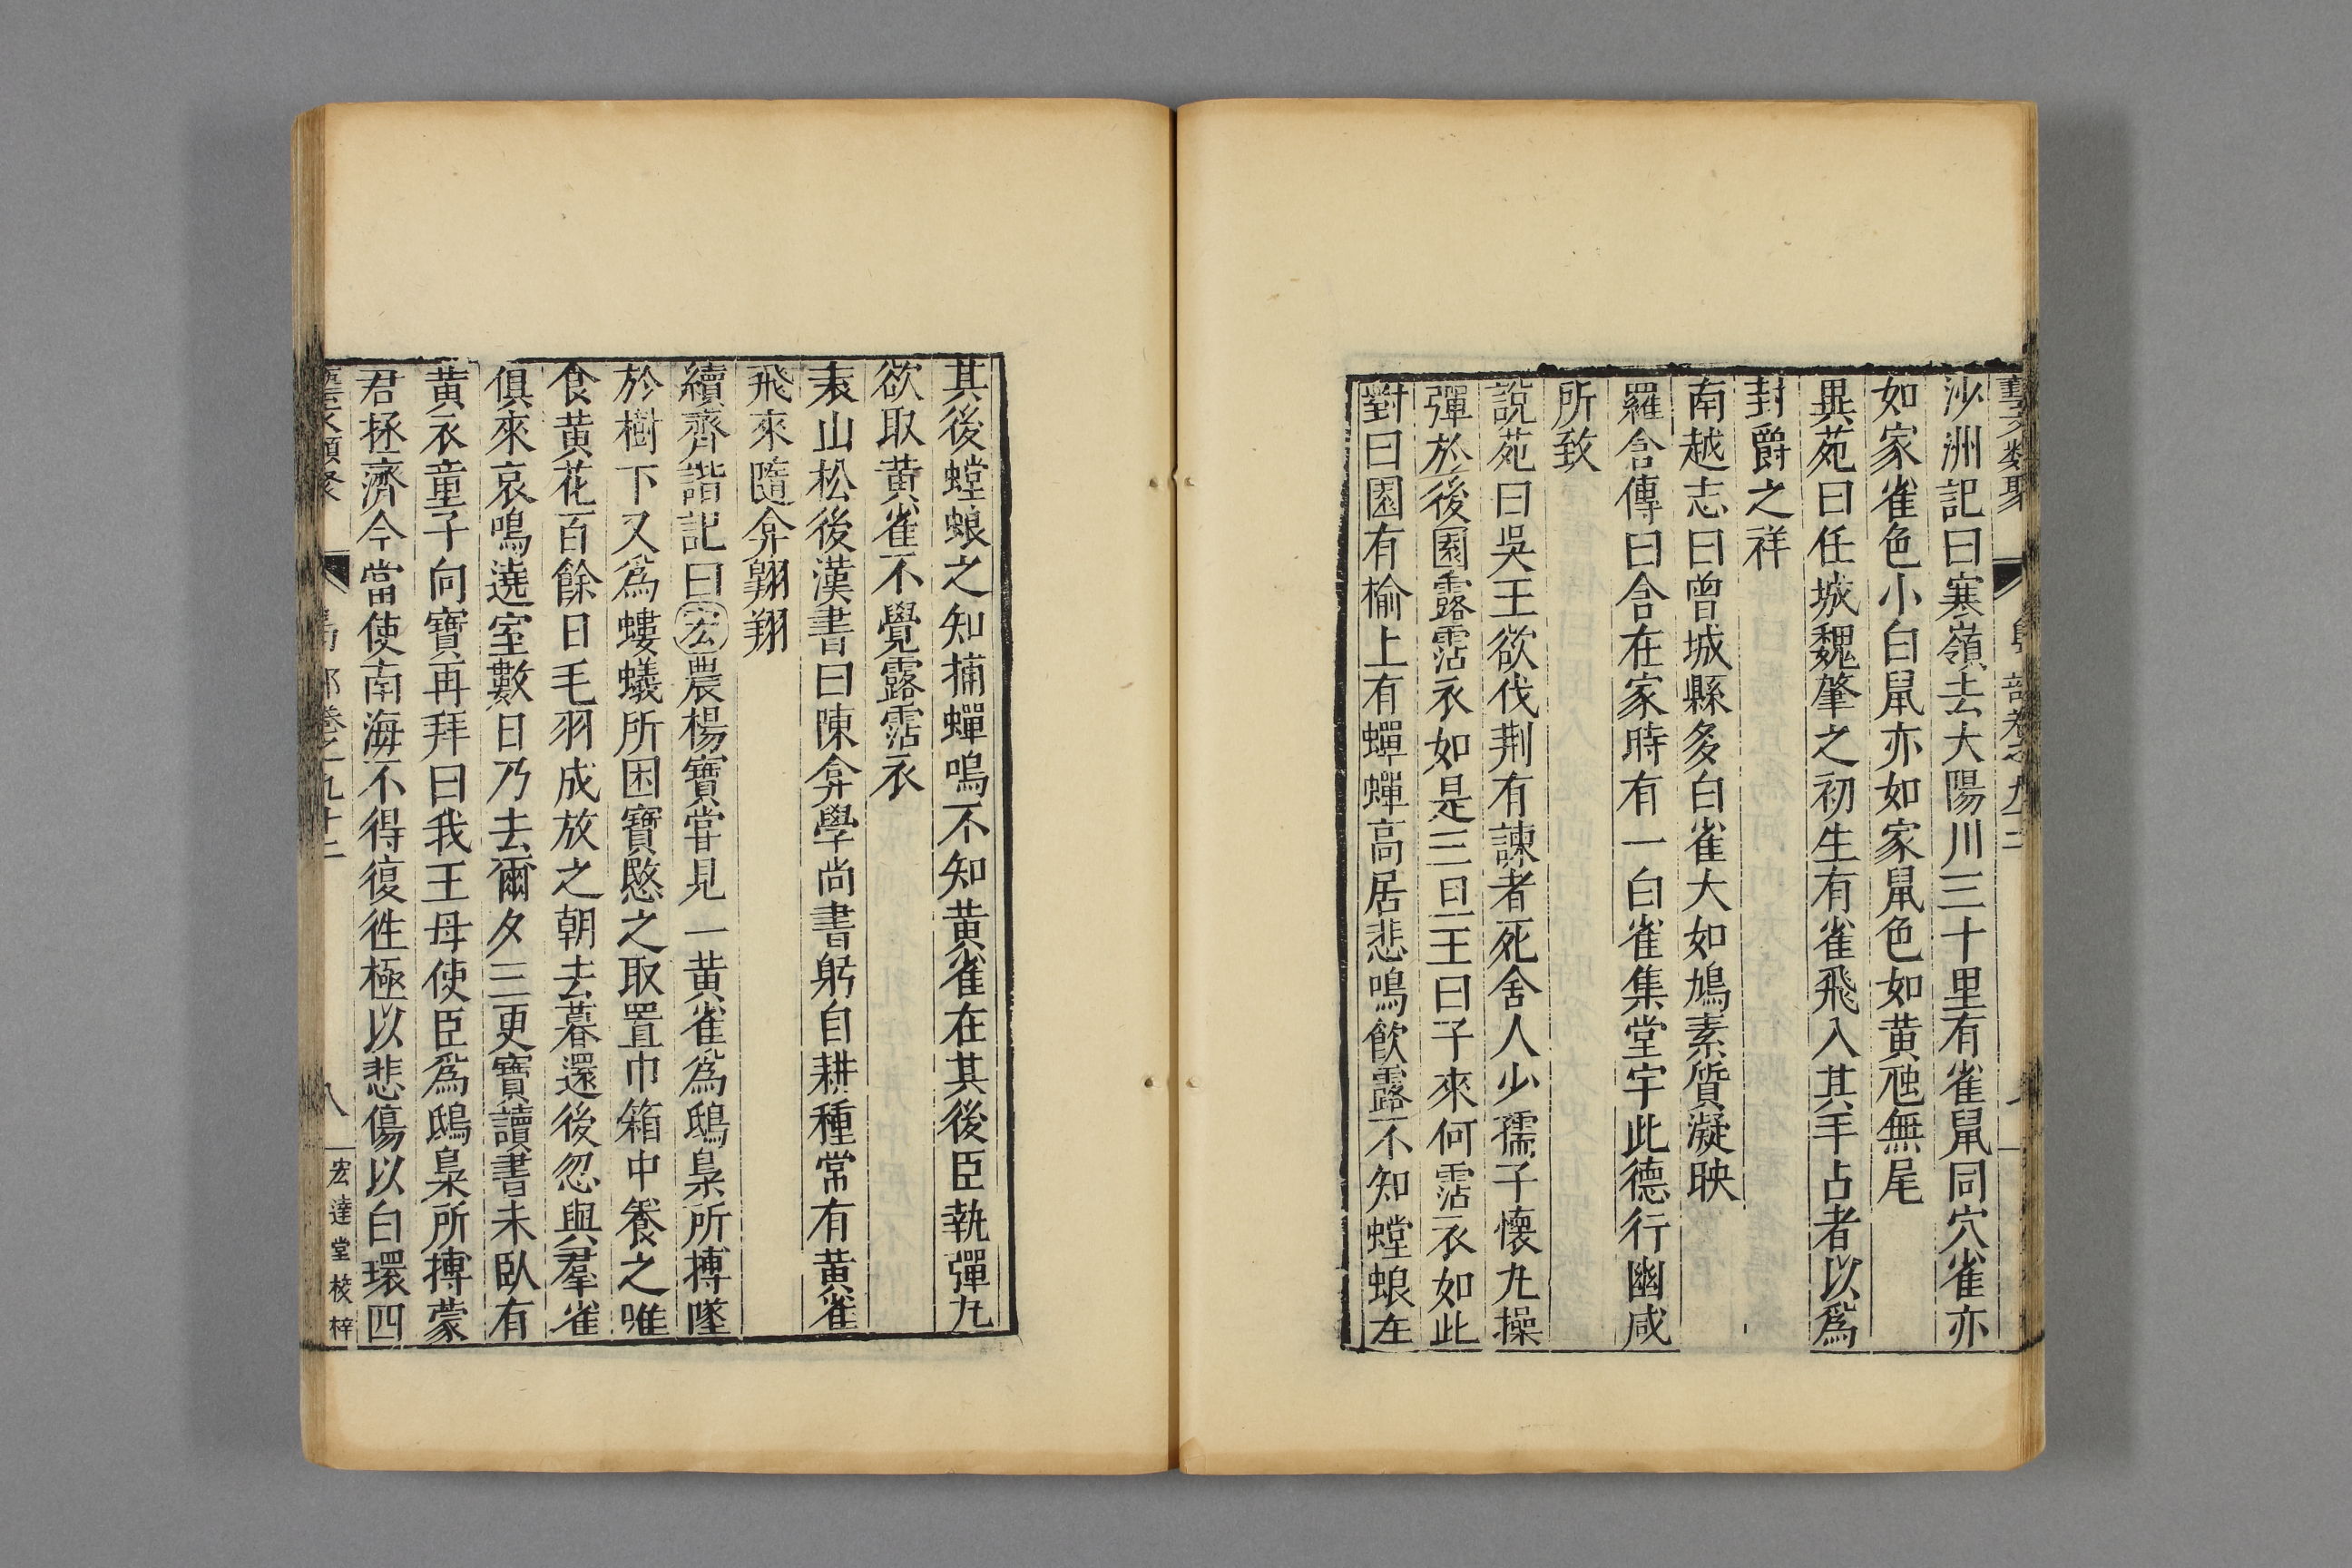 藝文類聚 鳥部卷之九十二
沙洲記曰寒嶺去大陽川三十里有雀鼠同穴雀亦
如家雀色小白鼠亦如家鼠色如黄虺無尾
異苑曰任城魏肇之初生有雀飛入其手占者以爲
封爵之祥
南越志曰曾城縣多白雀大如鳩素質凝映
羅含傳曰含在家時有一白雀集堂宇此德行幽感
所致
說苑曰吳王欲伐荆有諫者死舍人少孺子懷丸操
彈於後園露霑衣如是三旦王曰子來何霑衣如此
對曰園有榆上有蟬蟬高居悲鳴飲露不知螳蜋在
其後螳蜋之知捕蟬鳴不知黄雀在其後臣執彈丸
欲取黄雀不覺露霑衣
袁山松後漢書曰陳弇學尚書躬自耕種常有黄雀
飛來隨弇翱翔
續齊諧記曰宏農楊寶嘗見一黄雀爲鴟梟所搏墜
於樹下又爲螻蟻所困寶愍之取置巾箱中養之唯
食黄花百餘日毛羽成放之朝去暮還後忽與羣雀
俱來哀鳴遶室數日乃去爾夕三更寶讀書未臥有
黄衣童子向寶再拜曰我王母使臣爲鴟梟所搏蒙
君拯濟今當使南海不得復徃極以悲傷以白環四
藝文類聚 鳥部卷之九十二 八 宏達堂校梓